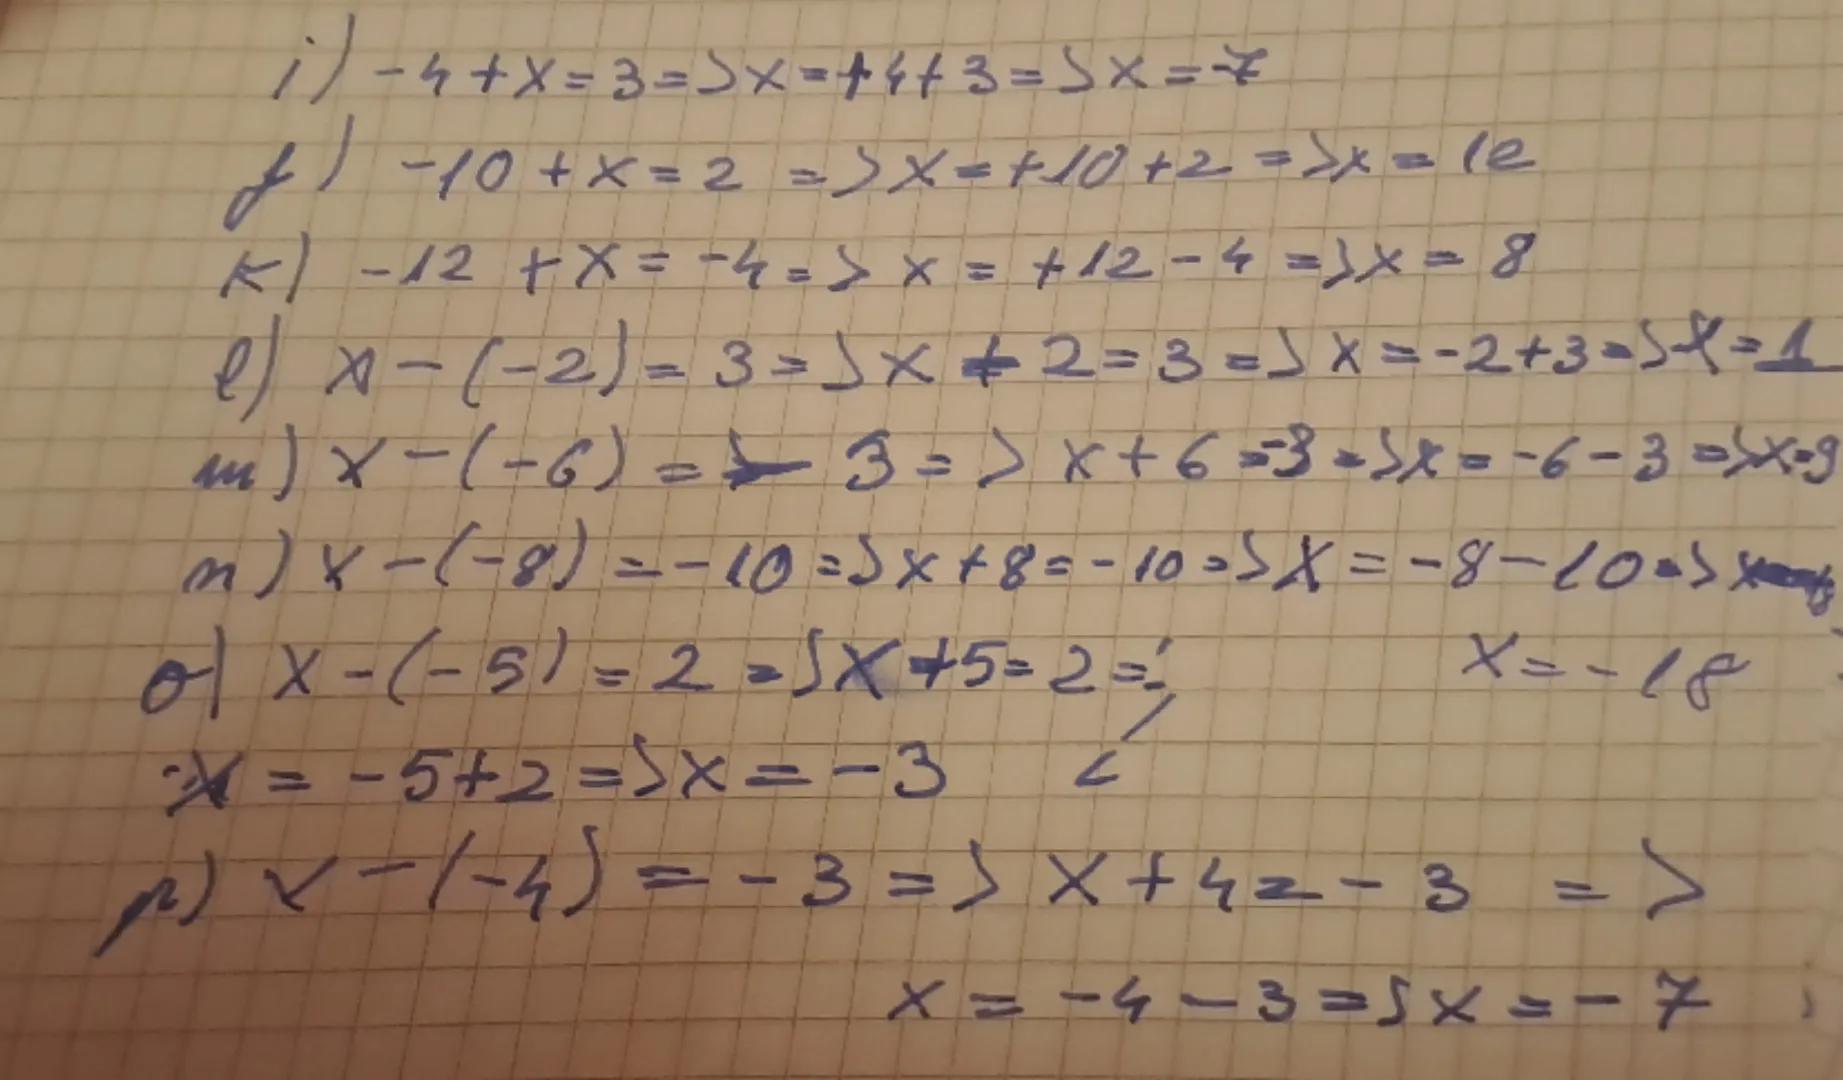 i) -4+x=3=>x=+4+3=>x=-7
j) -10+x=2=>x=+10+2=>x=12
k) -12+x=-4=>x=+12-4=>x=8
l) x-(-2)=3=>x+2=3=>x=-2+3=>x=1
m) x-(-6)=-3=>x+6=-3=>x=-6-3=>x=-9
n) x-(-8)=-10=>x+8=-10=>x=-8-10=>
x=-18
o) x-(-5)=2=>x+5=2=>
x=-5+2=>x=-3
p) x-(-4)=-3=>x+4=-3=>
x=-4-3=>x=-7